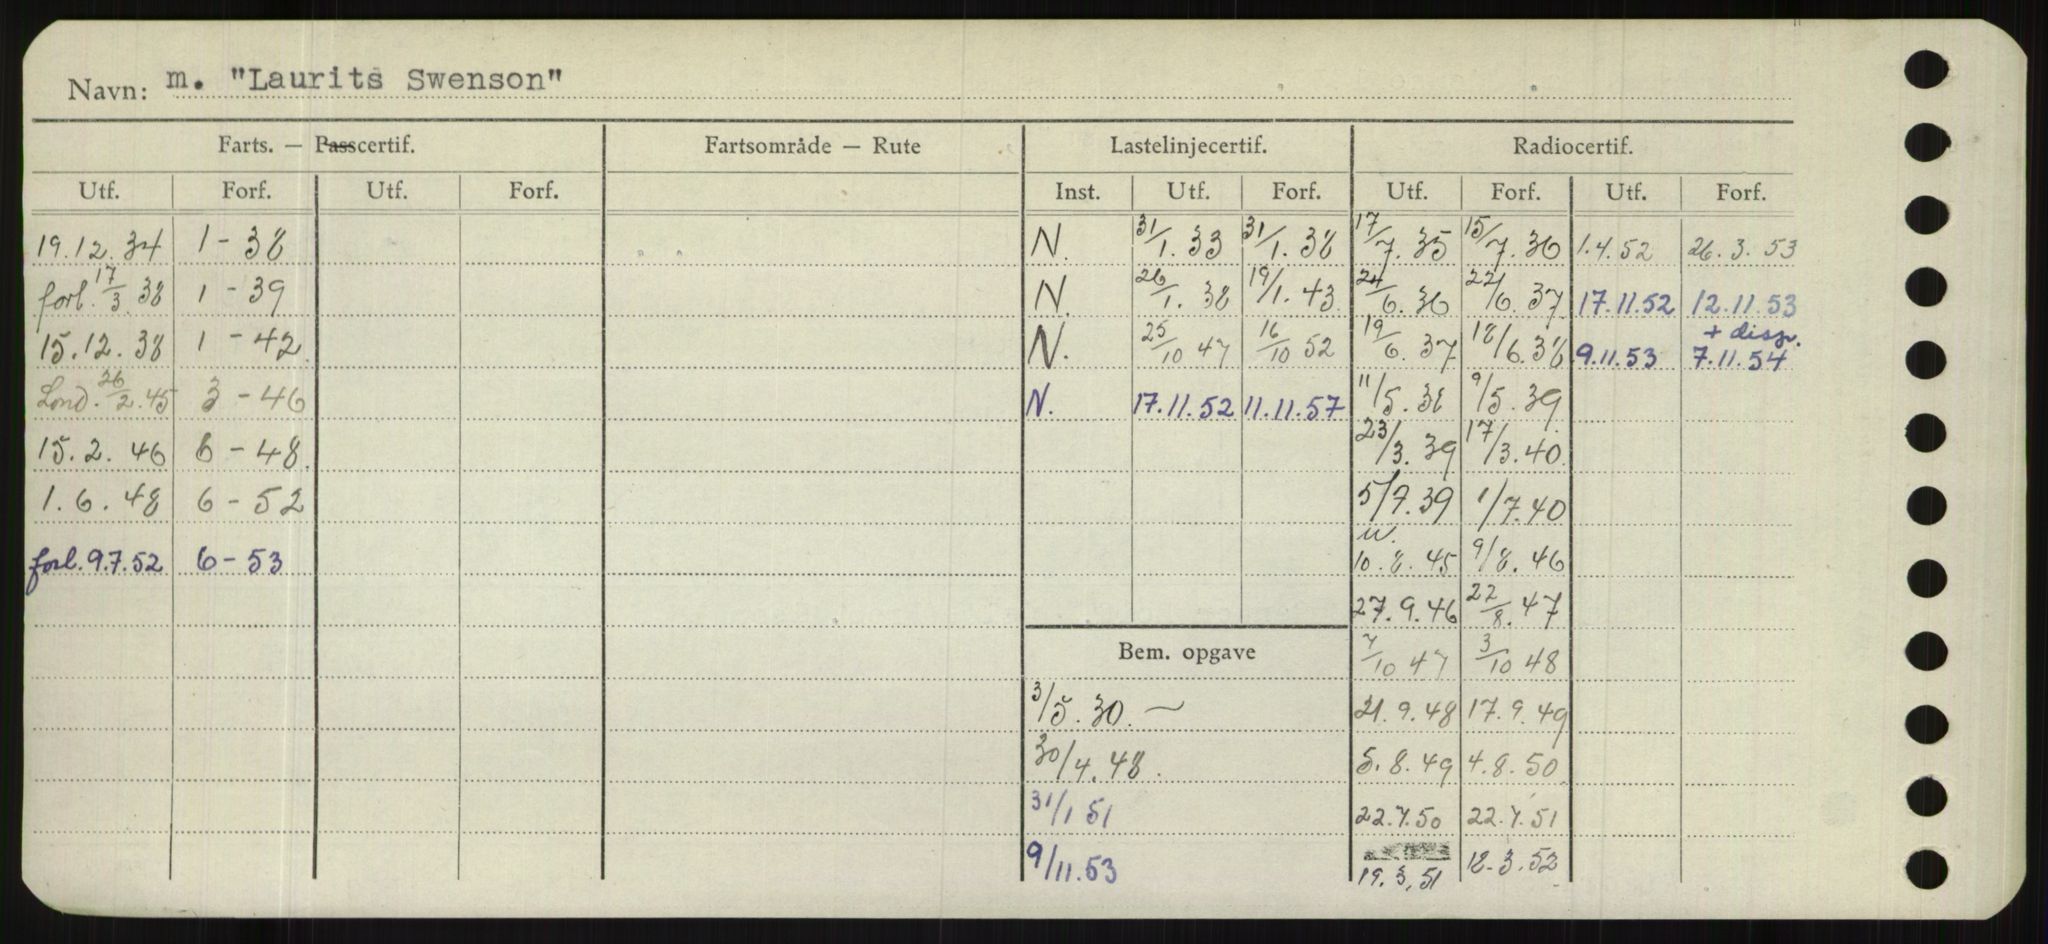 Navn: m. "Laurits Swenson"
Farts. — Passcertif. Fartsområde — Rute Lastelinjecertif. Radiocertif.
Utf. Forf. Utf. Forf. Inst. Utf. Forf. Utf. Forf. Utf. Forf.
19.12.34 1-38 N. 31/1.33 31/1.38 17/7.35 15/7.36 1.4.52 26.3.53
forl. 17/3.38 1-39 N. 26/1.38 19/1.43 24/6.36 22/6.37 17.11.52 12.11.53
15.12.38 1-42 N. 25/10 47 16/10 52 19/6.37 18/6.38 9.11.53 + disp. 7.11.54
Lond. 26/2.45 3-46 N. 17.11.52 11.11.57 11/5.38 9/5.39
15.2.46 6-48 23/3.39 17/3.40
1.6.48 6-52 5/7.39 1/7.40
forl. 9.7.52 6-53 10.8.45 9/8.46
27.9.46 22/8.47
Bem. opgave 7/10 47 3/10 48
3/5.30. — 21.9.48 17.9.49
30/4.48. 5.8.49 4.8.50
31/1 51 22.7.50 22.7.51
9/11.53 19.3.51 18.3.52